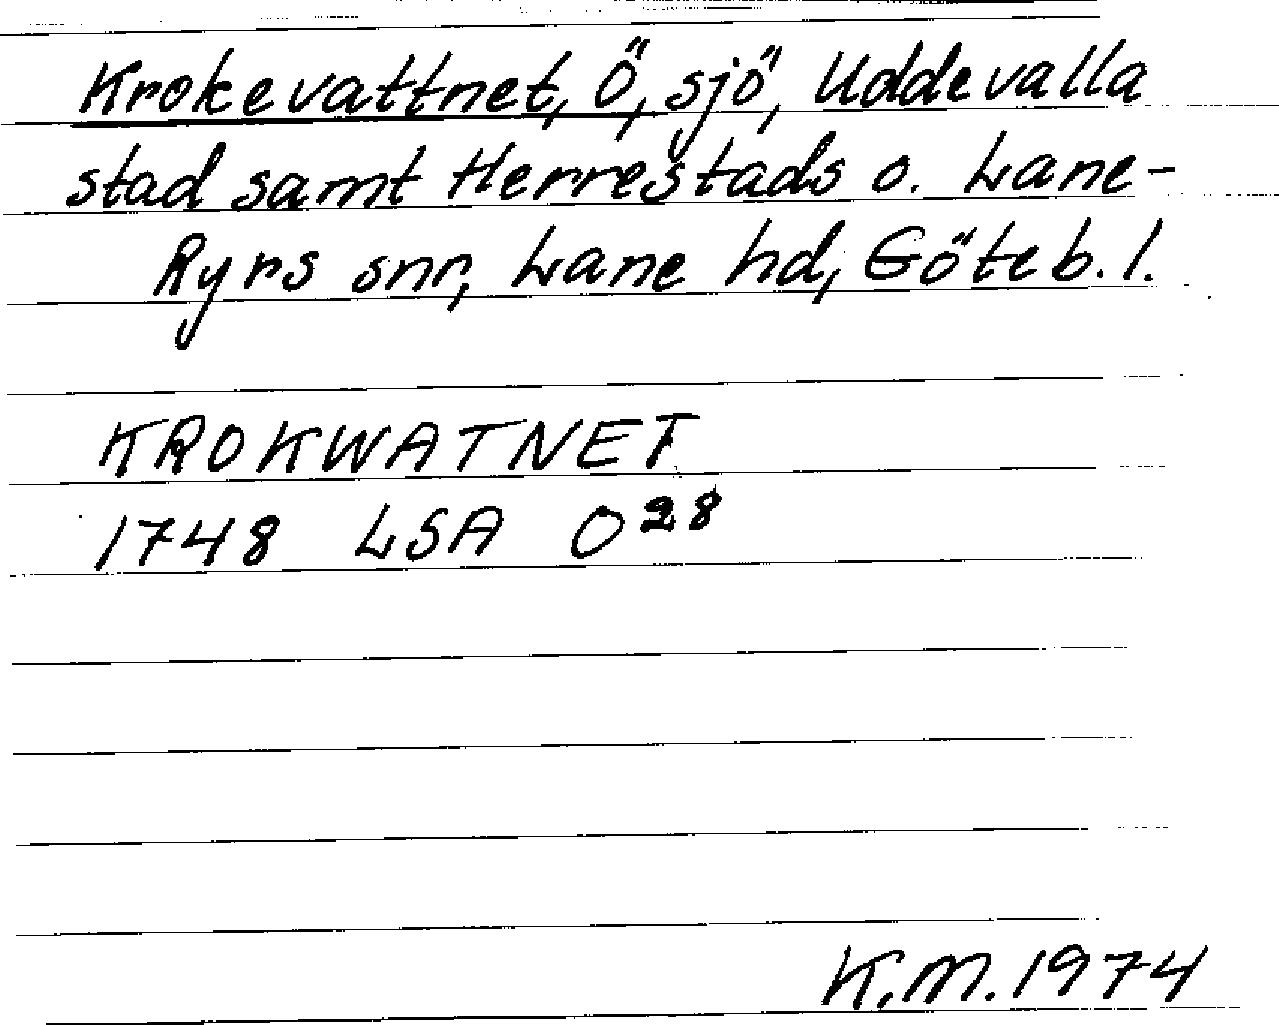 Krokevattnet, Ö, sjö, Uddevalla
stad samt Herrestads o. Lane-
Ryrs snr, Lane hd, Göteb. l.
KROKWATNET
1748 LSA O²⁸
K.M. 1974